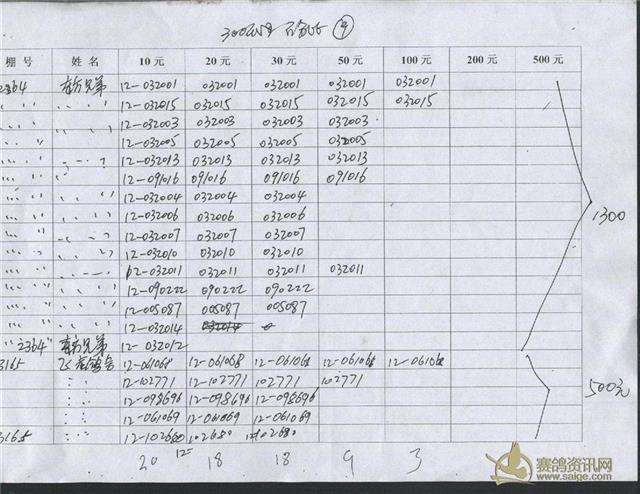 棚号 姓名 10元 20元 30元 50元 100元 200元 500元
2364 兄弟 12-032001 032001 032001 032001 032001
12-032015 032015 032015 032015 032015
12-032003 032003 032003 032003
12-032005 032005 032005 032005
12-032013 032013 032013 032013
12-091016 091016 091016 091016
12-032004 032004 032004
12-032006 032006 032006
12-032007 032007 032007
1300
12-032010 032010 032010
12-032011 032011 032011 032011
12-090222 090222 090222
12-005087 005087 005087
12-032014
"2364" 兄弟 12-032012
3165 12-061068 12-061068 12-061068 12-061068 12-061068
12-102771 12-102771 102771 102771
500元
12-098696 12-098696 12-098696
12-061069 12-061069 12-061069
3165 12-102680 12-102680 12-102680
20 18 18 9 3
赛鸽资讯网
www.saige.com